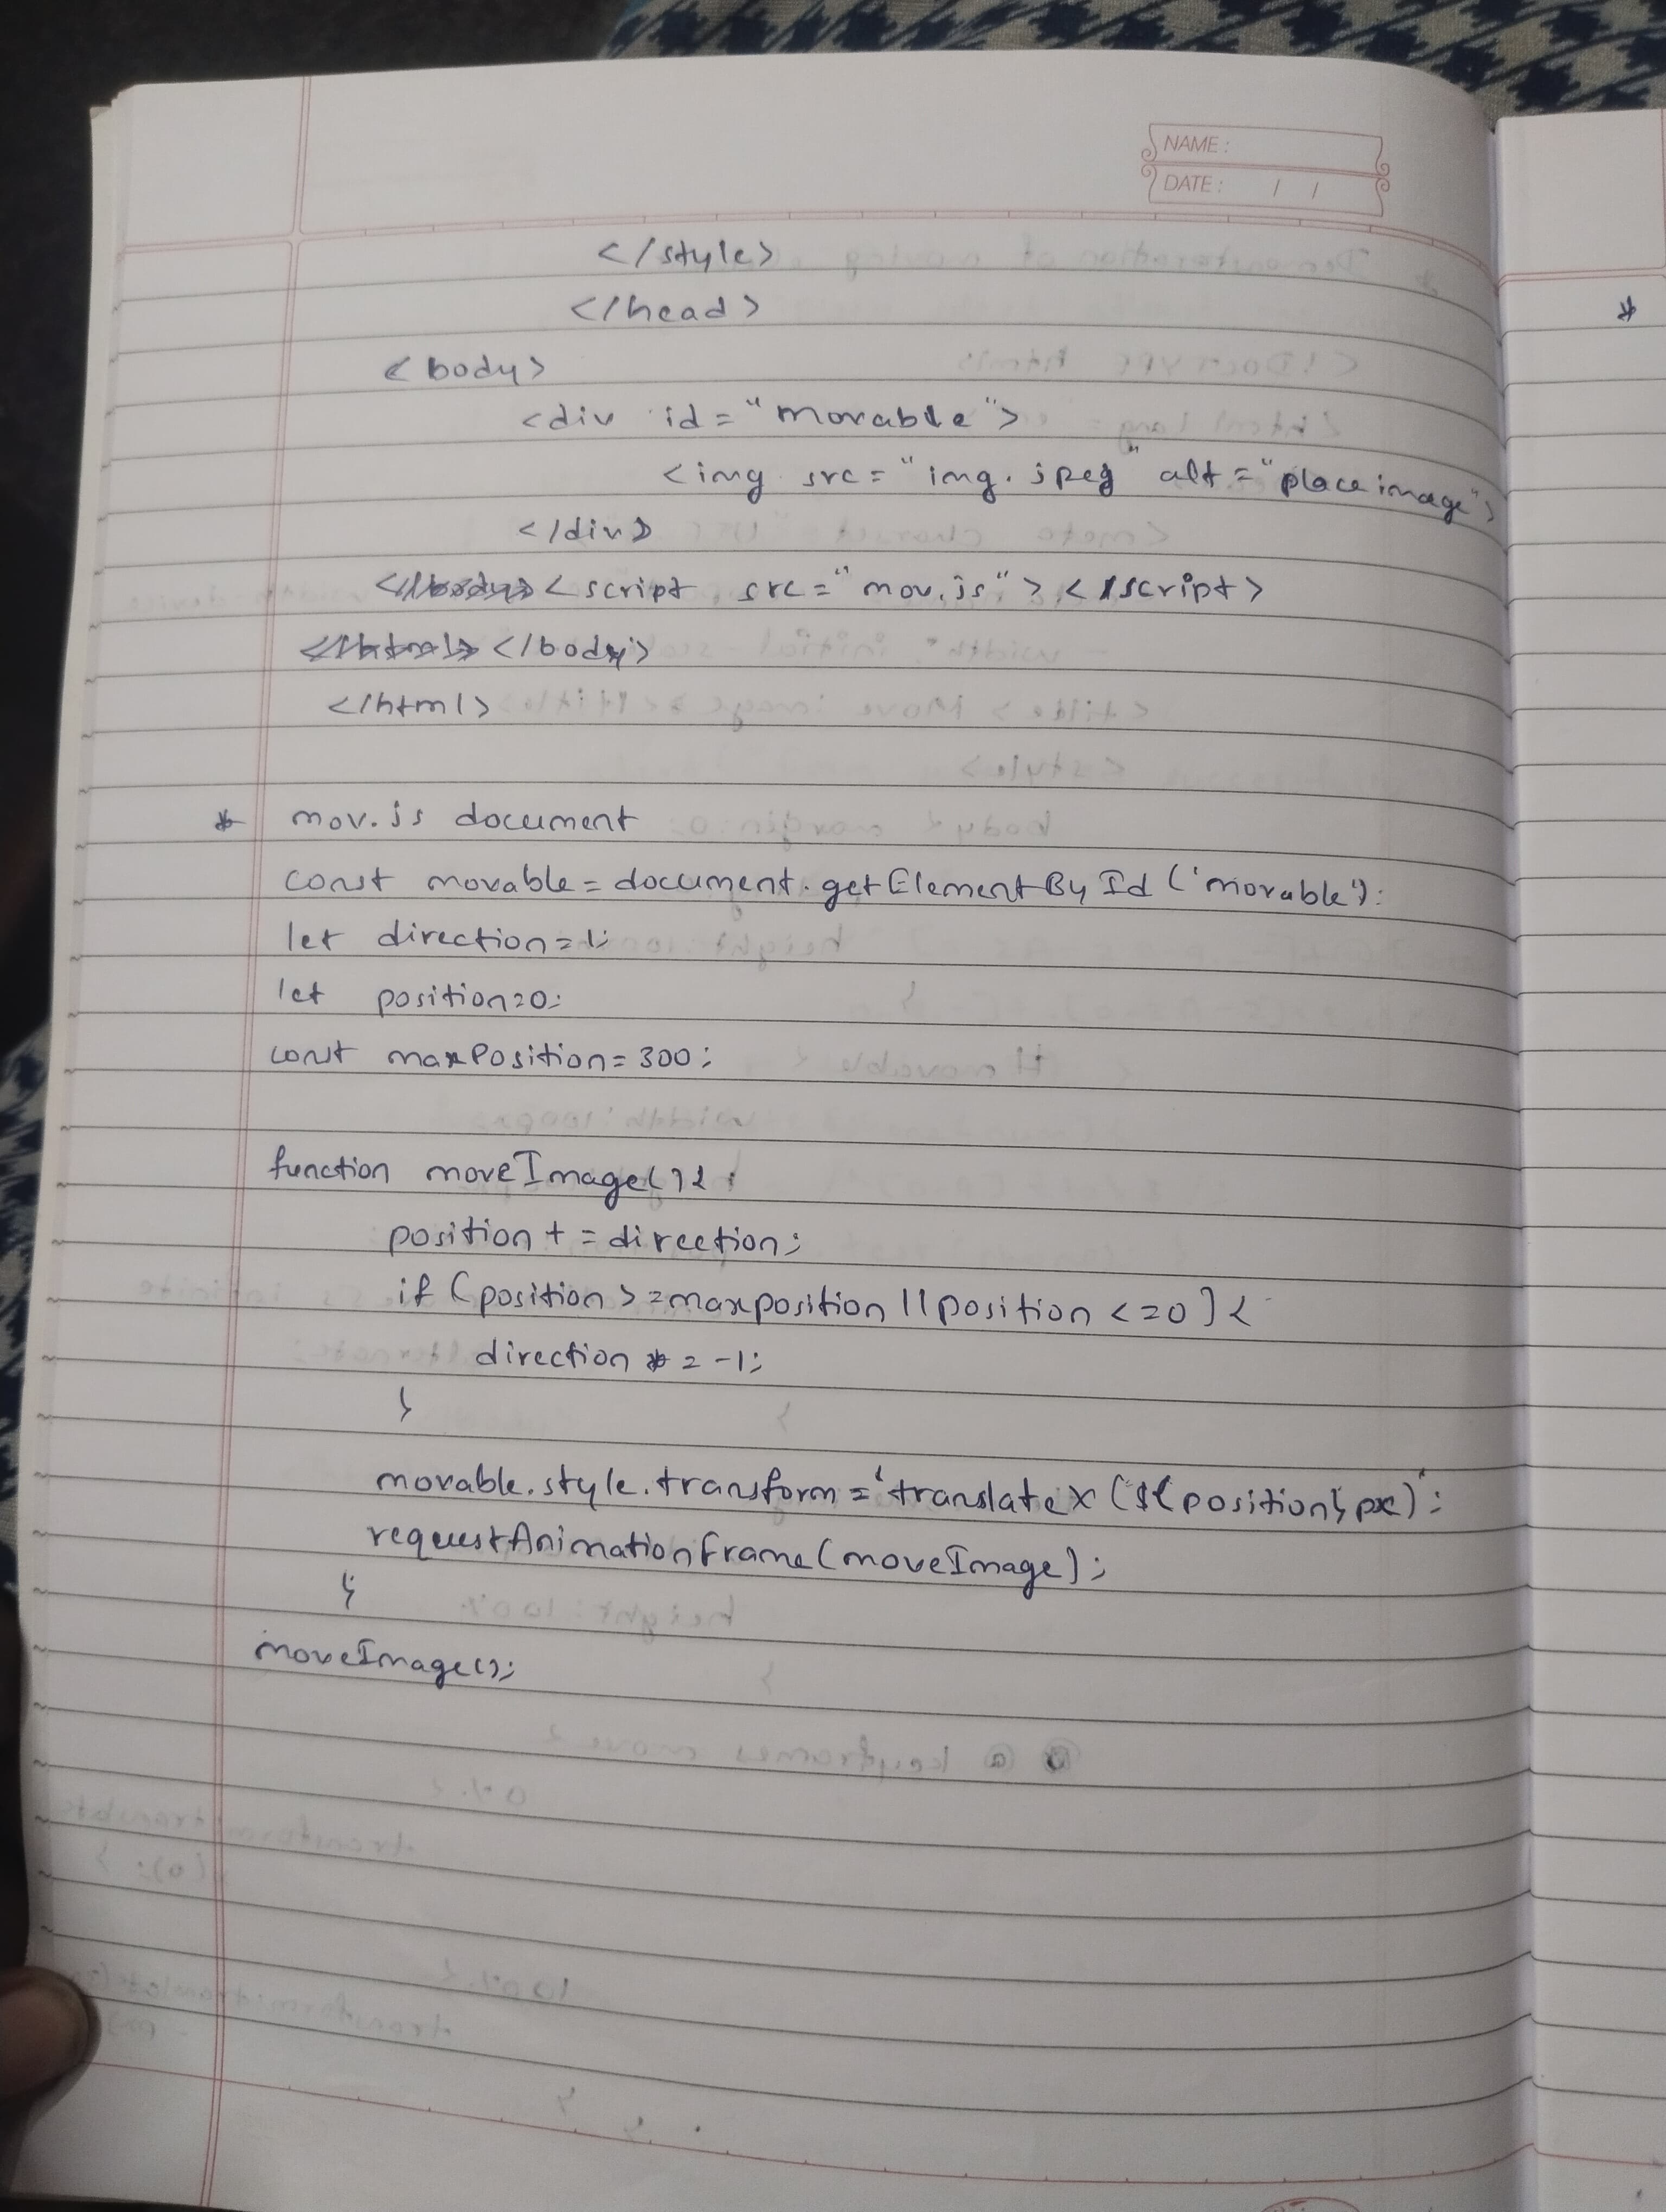 NAME:
DATE: / /
</style>
</head>
*
<body>
<div id="movable">
<img src="img.jpeg" alt="place image">
</div>
<script src="mov.js"></script>
</body>
</html>
* mov.js document
const movable=document.getElementById('movable');
let direction=1;
let position=0;
const maxPosition=300;
function moveImage(){
position+=direction;
if(position>=maxposition||position<=0){
direction *=-1;
}
movable.style.transform='translatex(${position}px)';
requestAnimationFrame(moveImage);
}
moveImage();